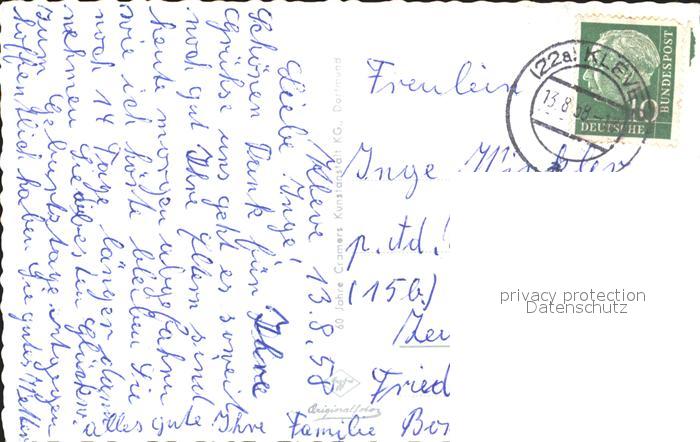 Kleve, 13.8.58
Liebe Inge!
Schönen Dank für Ihre
Grüße uns geht es soweit
noch gut Ihre Eltern sind
heute morgen abgefahren
wie ich hörte bleiben Sie
noch 14 Tage länger dann
nehmen Sie die besten Glückw.
zum Geburtstage entgegen
hoffentlich haben Sie gutes Wetter
alles gute Ihre Familie
60 Jahre Cramers Kunstanstalt KG., Dortmund
Originalfoto
Freulein
Inge
p. Ad.
(15b)
Fried
(22a) KLEVE
13.8.58
10
DEUTSCHE
BUNDESPOST
privacy protection
Datenschutz